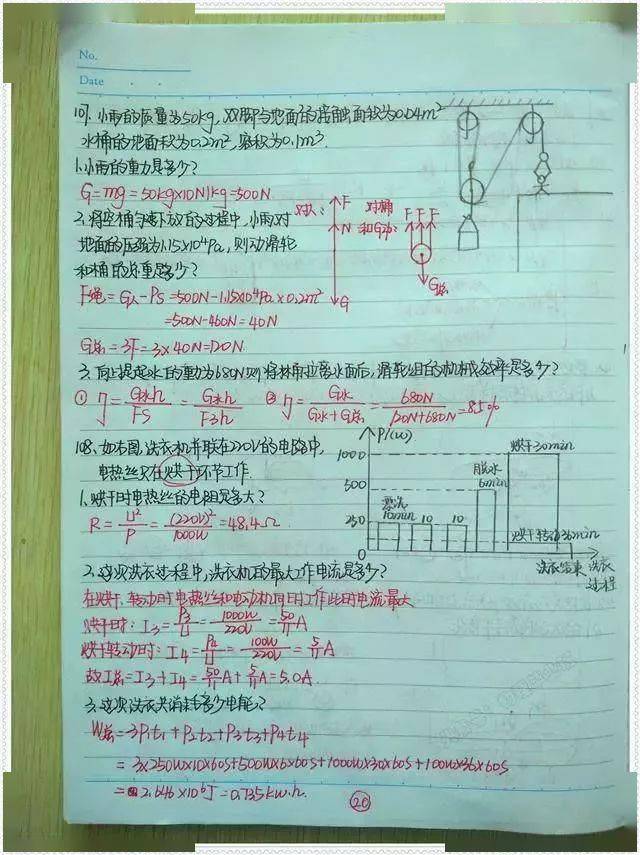 No.
Date
107. 小雨的质量为50kg, 双脚与地面的接触面积为0.04m²
水桶的地面积为0.2m², 容积为0.1m³.
1.小雨的重力是多少?
G=mg=50kg×10N/kg=500N
2.将空桶匀速下放的过程中,小雨对
地面的压强为1.15×10⁴Pa, 则动滑轮
和桶的总重是多少?
对人: F N G
对桶和G动: F F F G总
F绳=G人-PS=500N-1.15×10⁴Pa×0.2m²
=500N-460N=40N
G总=3F=3×40N=120N
3.向上提起水的重力为680N则将桶拉离水面后,滑轮组的机械效率是多少?
① η=G水h/FS=G水h/F3h ② η=G水/G水+G总=680N/120N+680N=85%
108.如右图,洗衣机并联在220V的电路中,
电热丝只在烘干环节工作.
P/(w)
1000
500
250
0
漂洗
10min 10 10
脱水
6min
烘干30min
烘干转动36min
洗衣结束
洗衣过程
1.烘干时电热丝的电阻是多大?
R=U²/P=(220V)²/1000W=48.4Ω
2.这次洗衣过程中,洗衣机的最大工作电流是多少?
在烘干、转动时电热丝和电动机同时工作此时电流最大
烘干时: I₃=P₃/U=1000W/220V=50/11A
烘干转动时: I₄=P₄/U=100W/220V=5/11A
故I总=I₃+I₄=50/11A+5/11A=5.0A
3.这次洗衣共消耗多少电能?
W总=3P₁t₁+P₂t₂+P₃t₃+P₄t₄
=3×250W×10×60s+500W×6×60s+1000W×30×60s+100W×36×60s
=2.646×10⁶J=0.735kw.h.
20